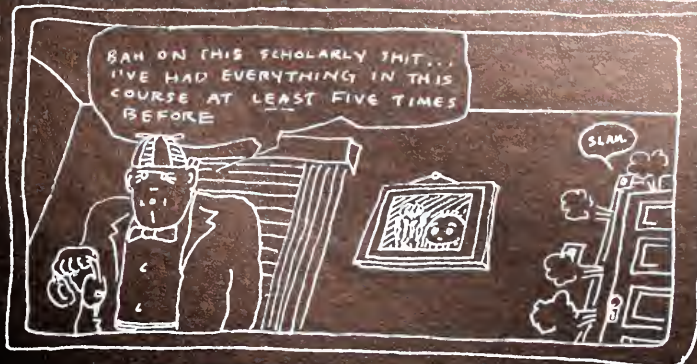 BAH ON THIS SCHOLARLY SHIT...
I'VE HAD EVERYTHING IN THIS
COURSE AT LEAST FIVE TIMES
BEFORE
SLAM